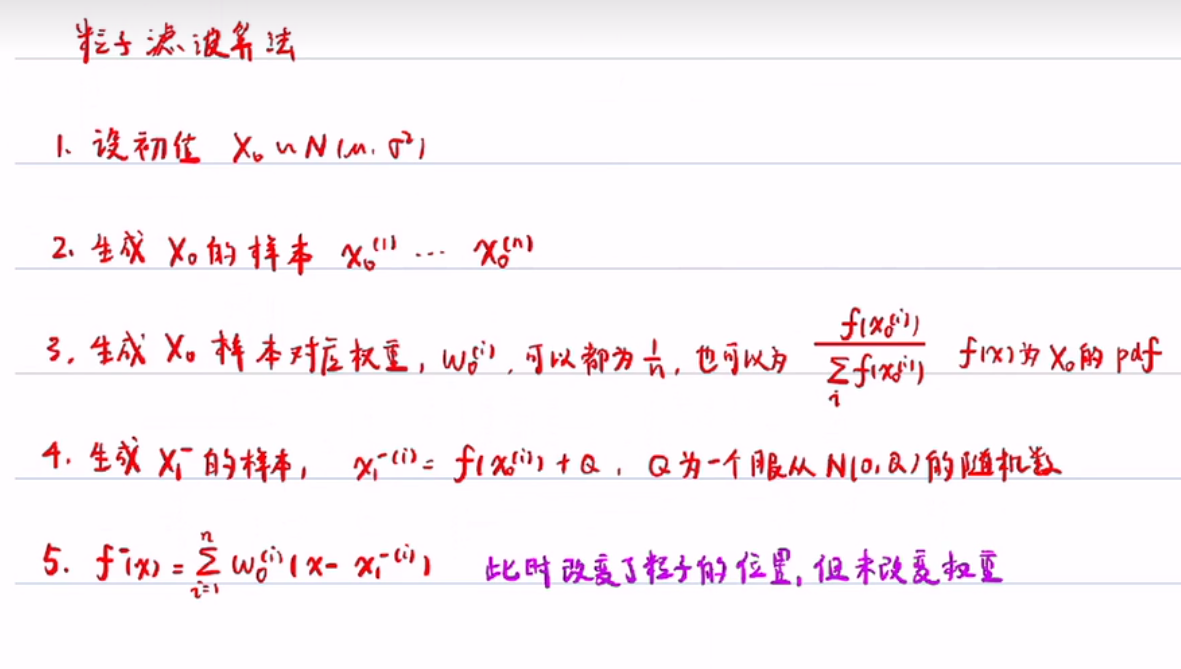 粒子滤波算法
1. 设初值 X₀ ~ N(μ, σ²)
2. 生成 X₀ 的样本 x₀⁽¹⁾ ... x₀⁽ⁿ⁾
3. 生成 X₀ 样本对应权重, w₀⁽ⁱ⁾, 可以都为 1/n, 也可以为 f(x₀⁽ⁱ⁾) / ∑ᵢ f(x₀⁽ⁱ⁾) f(x)为 X₀ 的 pdf
4. 生成 X₁⁻ 的样本, x₁⁻⁽ⁱ⁾ = f(x₀⁽ⁱ⁾) + Q, Q 为一个服从 N(0,Q) 的随机数
5. f⁻(x) = ∑ᵢ₌₁ⁿ w₀⁽ⁱ⁾(x - x₁⁻⁽ⁱ⁾) 此时改变了粒子的位置, 但未改变权重